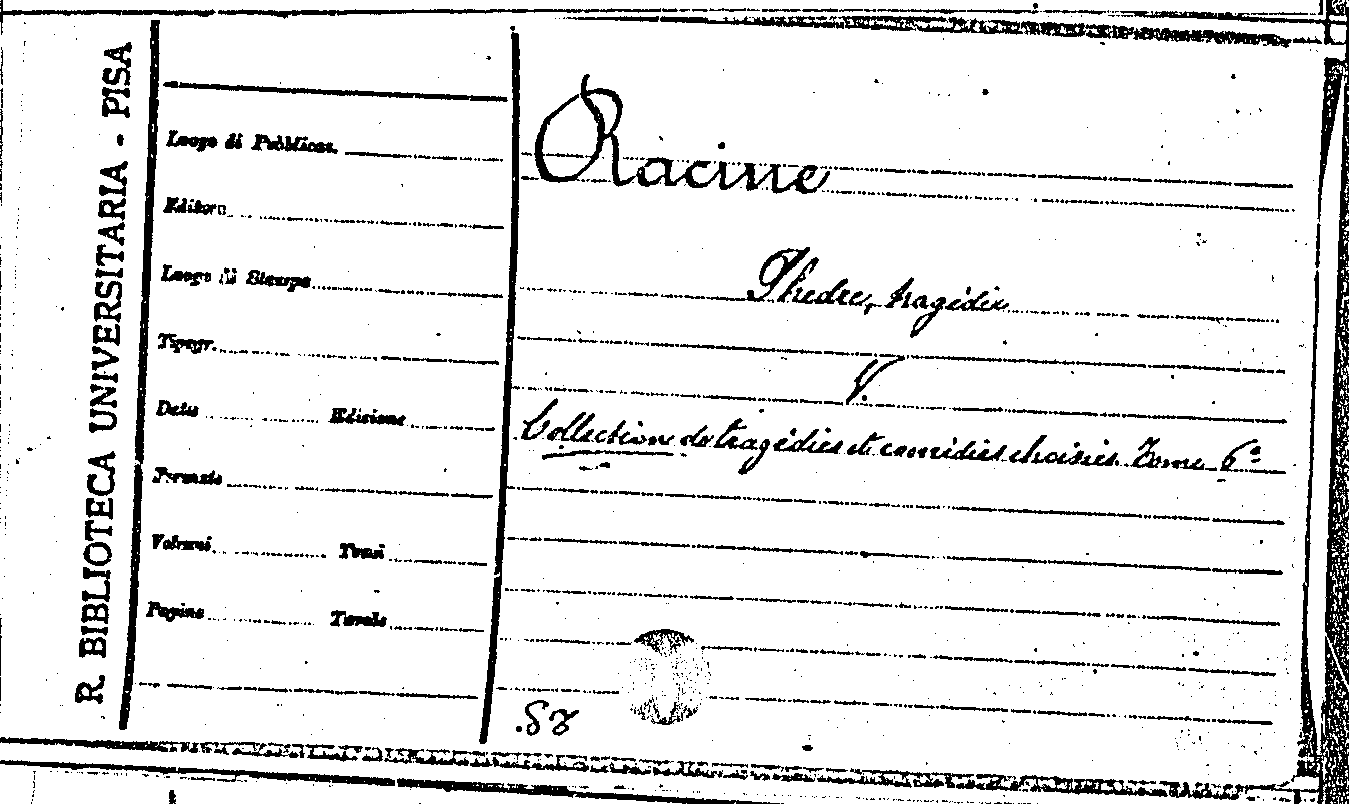 R. BIBLIOTECA UNIVERSITARIA - PISA
Luogo di Pubblicaz.
Editore
Luogo di Stampa
Tipogr.
Data Edizione
Formato
Volumi Tomi
Pagine Tavole
Racine
Phedre, tragédie
V.
Collection de tragédies et comédies choisies. Tome 6º